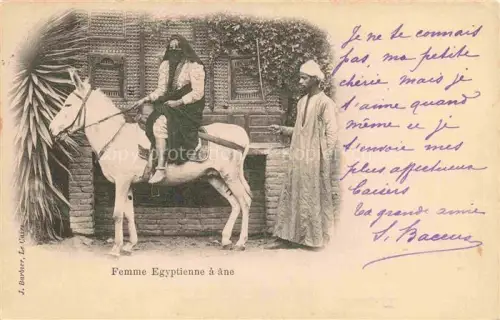 Je ne te connais
pas, ma petite
chérie mais je
t'aime quand
même et je
t'envoie mes
plus affectueux
baisers
ta grande amie
S. Baccus
Femme Egyptienne à âne
J. Barbier, Le Caire